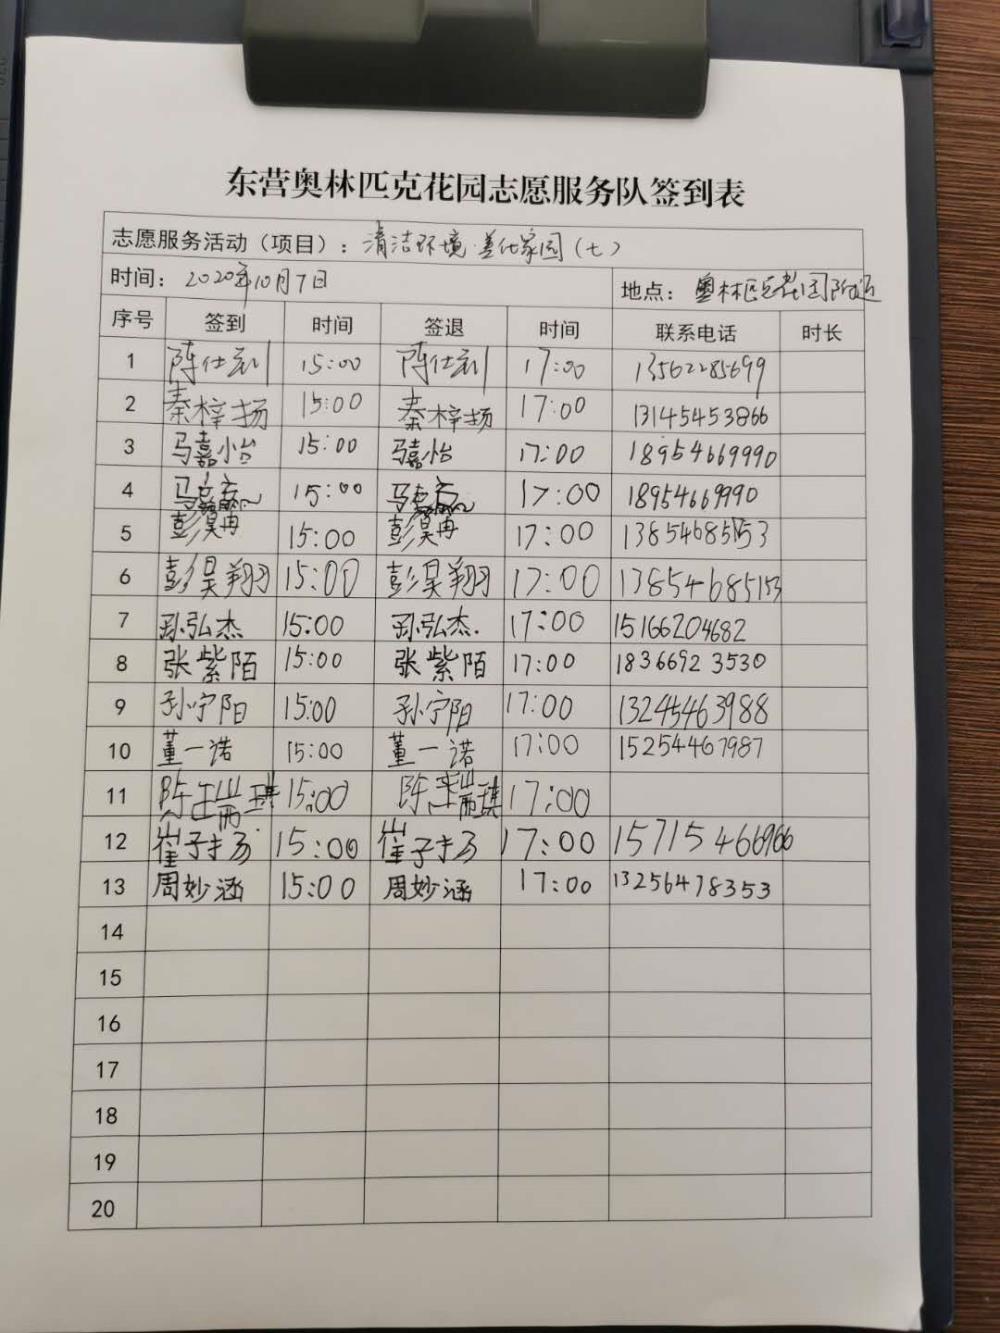 东营奥林匹克花园志愿服务队签到表
志愿服务活动（项目）：清洁环境·美化家园（七）
时间：2020年10月7日 地点：奥林匹克花园附近
序号 签到 时间 签退 时间 联系电话 时长
1 陈仕 15:00 陈仕 17:00 13562285699
2 秦梓扬 15:00 秦梓扬 17:00 13145453866
3 马嘉怡 15:00 马嘉怡 17:00 18954669990
4 15:00 17:00 18954669990
5 彭昊冉 15:00 彭昊冉 17:00 13854685153
6 彭昊翔 15:00 彭昊翔 17:00 13854685153
7 孙弘杰 15:00 孙弘杰. 17:00 15166204682
8 张紫陌 15:00 张紫陌 17:00 18366923530
9 孙宁阳 15:00 孙宁阳 17:00 13245463988
10 董一诺 15:00 董一诺 17:00 15254467987
11 陈 琪 15:00 陈 琪 17:00
12 崔子扬 15:00 崔子扬 17:00 15715466966
13 周妙涵 15:00 周妙涵 17:00 13256478353
14
15
16
17
18
19
20